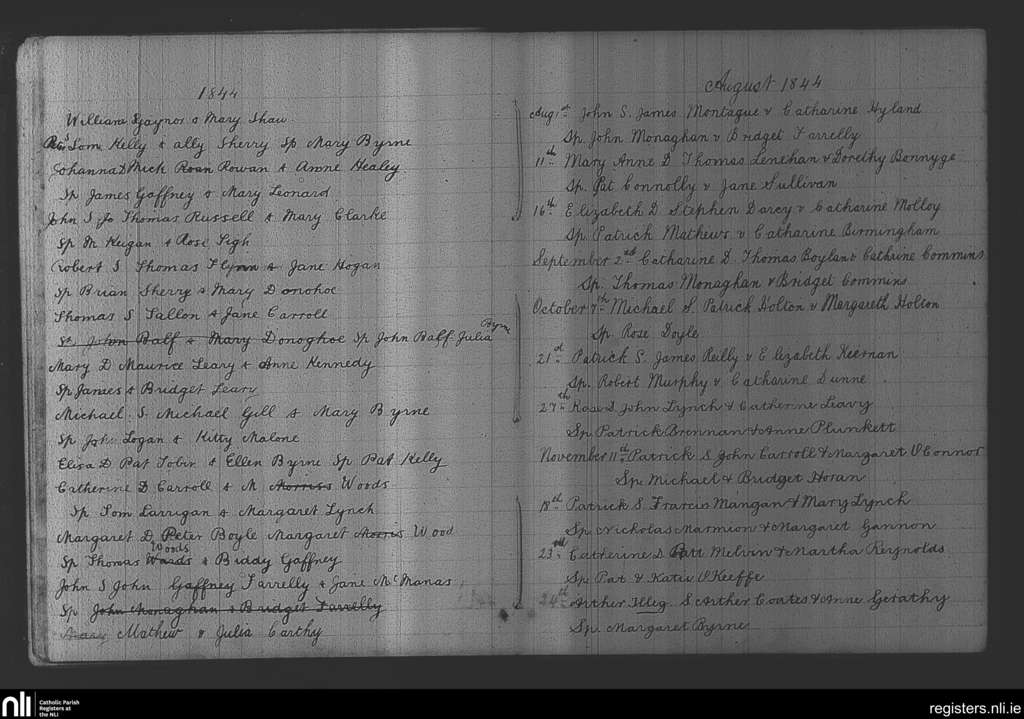 1844
William Gaynor o Mary Shaw
Tom Kelly & ally Sherry Sp Mary Byrne
Johanna D Mick Roan Rowan & Anne Healey
Sp James Gaffney o Mary Leonard
John S Jo Thomas Russell & Mary Clarke
Sp M Keigan & Rose
Robert S Thomas Flynn & Jane Hogan
Sp Brian Sherry & Mary Donohoe
Thomas S Tallon & Jane Carroll
St John Balf & Mary Donoghoe Sp John Balf Julia Byrne
Mary D Maurice Leary & Anne Kennedy
Sp James & Bridget Leary
Michael S Michael Gill & Mary Byrne
Sp John Logan & Kitty Malone
Elisa D Pat Tobin & Ellen Byrne Sp Pat Kelly
Catherine D Carroll & M Morriss Woods
Sp Tom Larrigan & Margaret Lynch
Margaret D Peter Boyle Margaret Morris Wood
Woods
Sp Thomas Wards & Biddy Gaffney
John S John Gaffney Farrelly & Jane McManas
Sp John Monaghan & Bridget Farrilly
Mary Mathew & Julia Carthy
August 1844
Aug 1st John S. James Montague & Catharine Hyland
Sp. John Monaghan & Bridget Farrelly
11th Mary Anne D Thomas Lenehan & Dorethy Bonnyge
Sp. Pat Connolly & Jane Sullivan
16th Elizabeth D Stephen Darcy & Catharine Molloy
Sp. Patrick Mathews & Catharine Birmingham
September 2nd Catharine D. Thomas Boylan & Cathrine Commins
Sp. Thomas Monaghan & Bridget Commins
October 7th Michael S. Patrick Holton & Margareth Holton
Sp Rose Doyle
21st Patrick S. James Reilly & Elizabeth Keernan
Sp. Robert Murphy & Catharine Dunne
27th Rose S John Lynch & Catherine Leavy
Sp Patrick Brennan & Anne Plunkett
November 11th Patrick S John Carroll & Margaret O'Connor
Sp Michael & Bridget Horan
18th Patrick S Francis Mangan & Mary Lynch
Sp Nicholas Marmion & Margaret Gannon
23rd Catherine D Patt Melvin & Martha Reignolds
Sp Pat & Katie O'Keeffe
24th Arther Illeg. S Arther Coates & Anne Gerathy
Sp. Margaret Byrne
nli Catholic Parish
Registers at
the NLI
registers.nli.ie